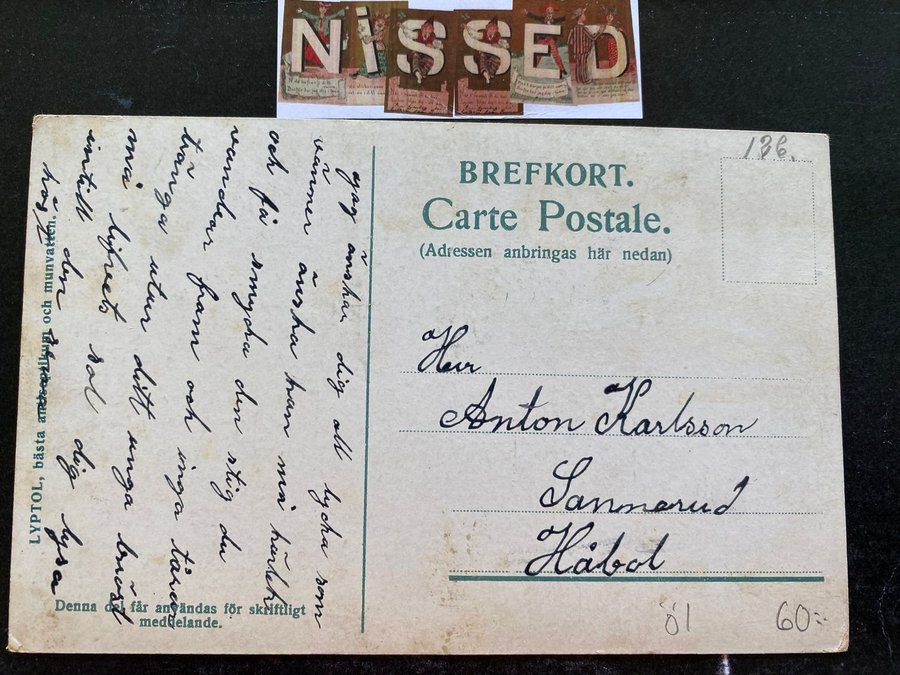 NISSED
BREFKORT.
Carte Postale.
(Adressen anbringas här nedan)
136.
Herr
Anton Karlsson
Sannerud
Håbol
öl
60:-
jag önskar dig all lycka som
vänner önska kan må härlik
och få smycka den stig du
vandrar fram och inga tårar
tränga utur ditt unga bröst
må lifvets sol dig lysa
intill den
höst
LYPTOL, bästa antiseptikum och munvatten.
Denna del får användas för skriftligt
meddelande.